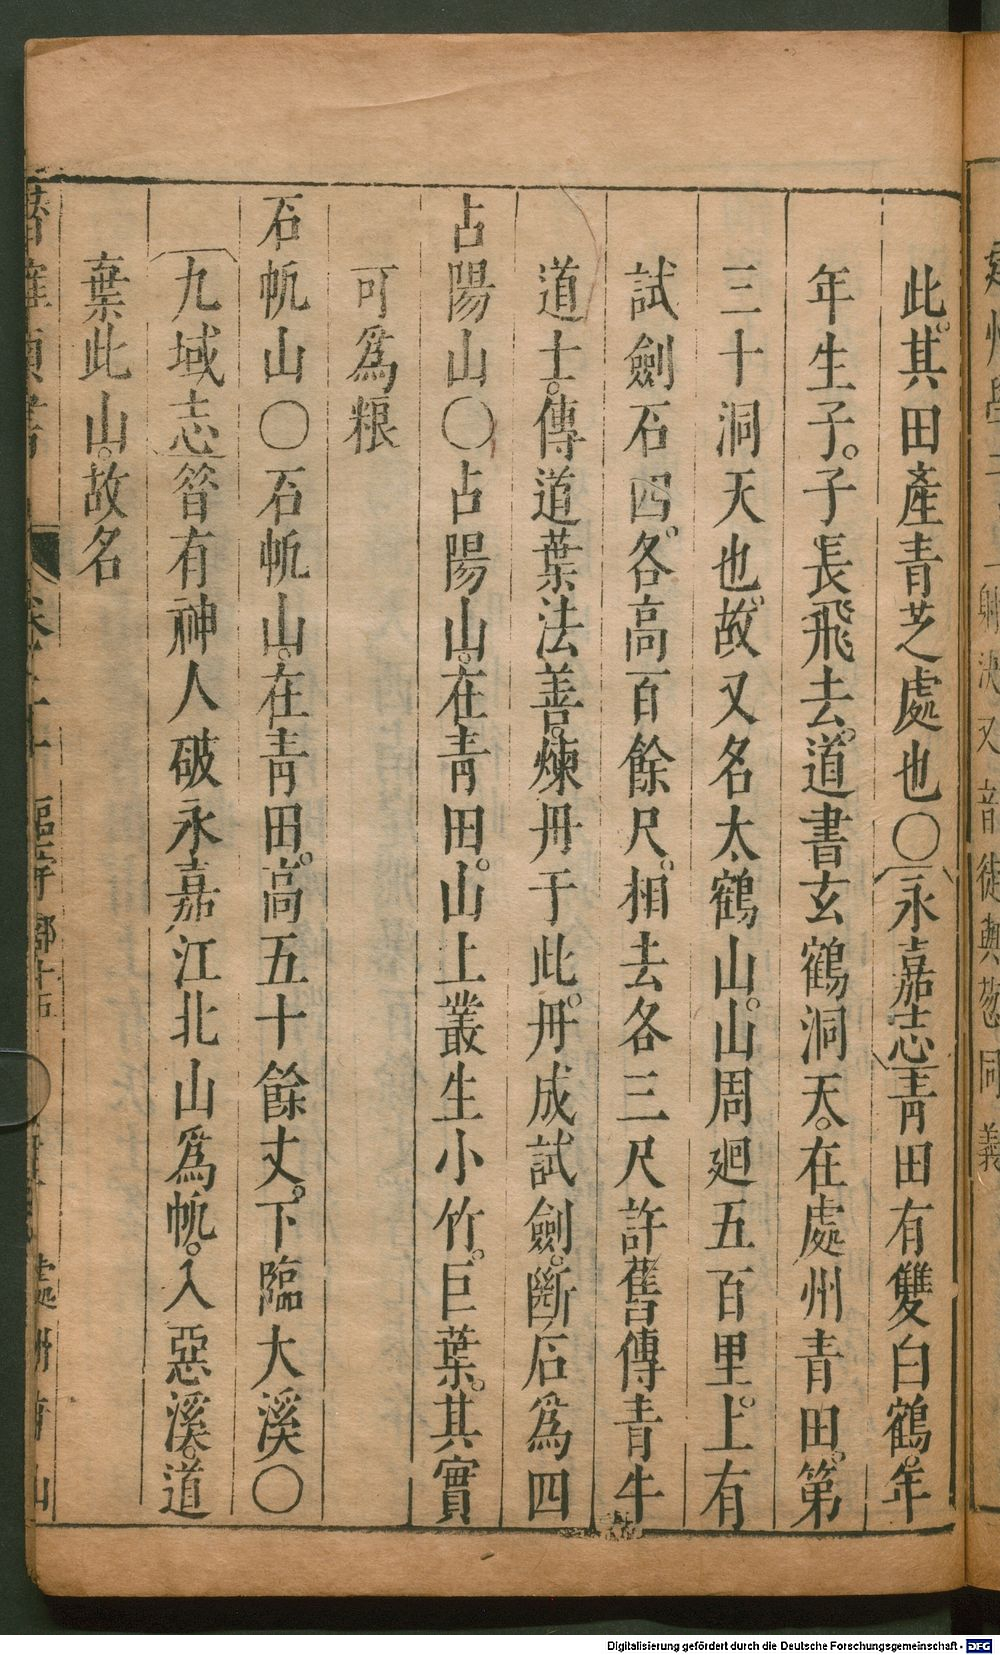 此其田產青芝處也〇永嘉志青田有雙白鶴年
年生子子長飛去道書玄鶴洞天在處州青田第
三十洞天也故又名太鶴山山周廻五百里上有
試劍石四各高百餘尺相去各三尺許舊傳青牛
道士傳道葉法善煉丹于此丹成試劍斷石爲四
占陽山〇占陽山在青田山上叢生小竹巨葉其實
可爲粮
石帆山〇石帆山在青田高五十餘丈下臨大溪〇
九域志晉有神人破永嘉江北山爲帆入惡溪道
棄此山故名
Digitalisierung gefördert durch die Deutsche Forschungsgemeinschaft - DFG